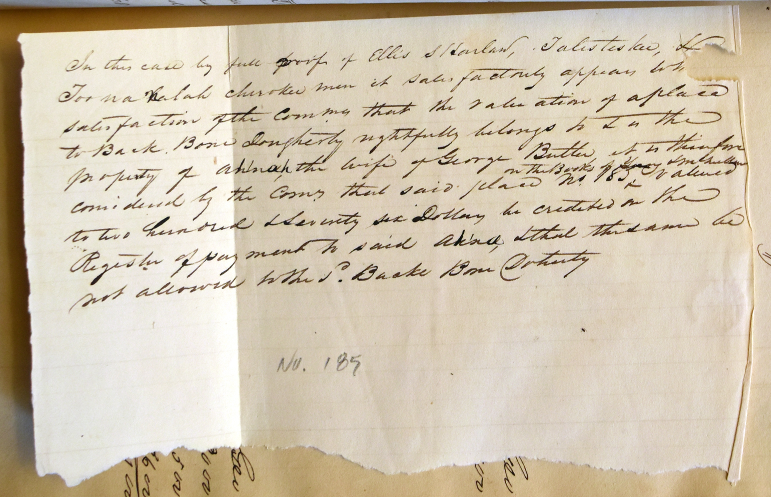 In this case by full proof of Ellis S Harlan, Talisteskee, &
Too na kalah cherokee men it satisfactorily appears to the
satisfaction of the Comms that the valuation of a place
to Back Bone Dougherty rightfully belongs to & is the
property of the wife of George Butler it is therefore
on the Books of
considered by the Coms that said place No. 185 valued
to two hundred & Seventy six Dollars be credited on the
Register of payment to said & that the same be
not allowed to the sd. Backe Bone Doherty
No. 185